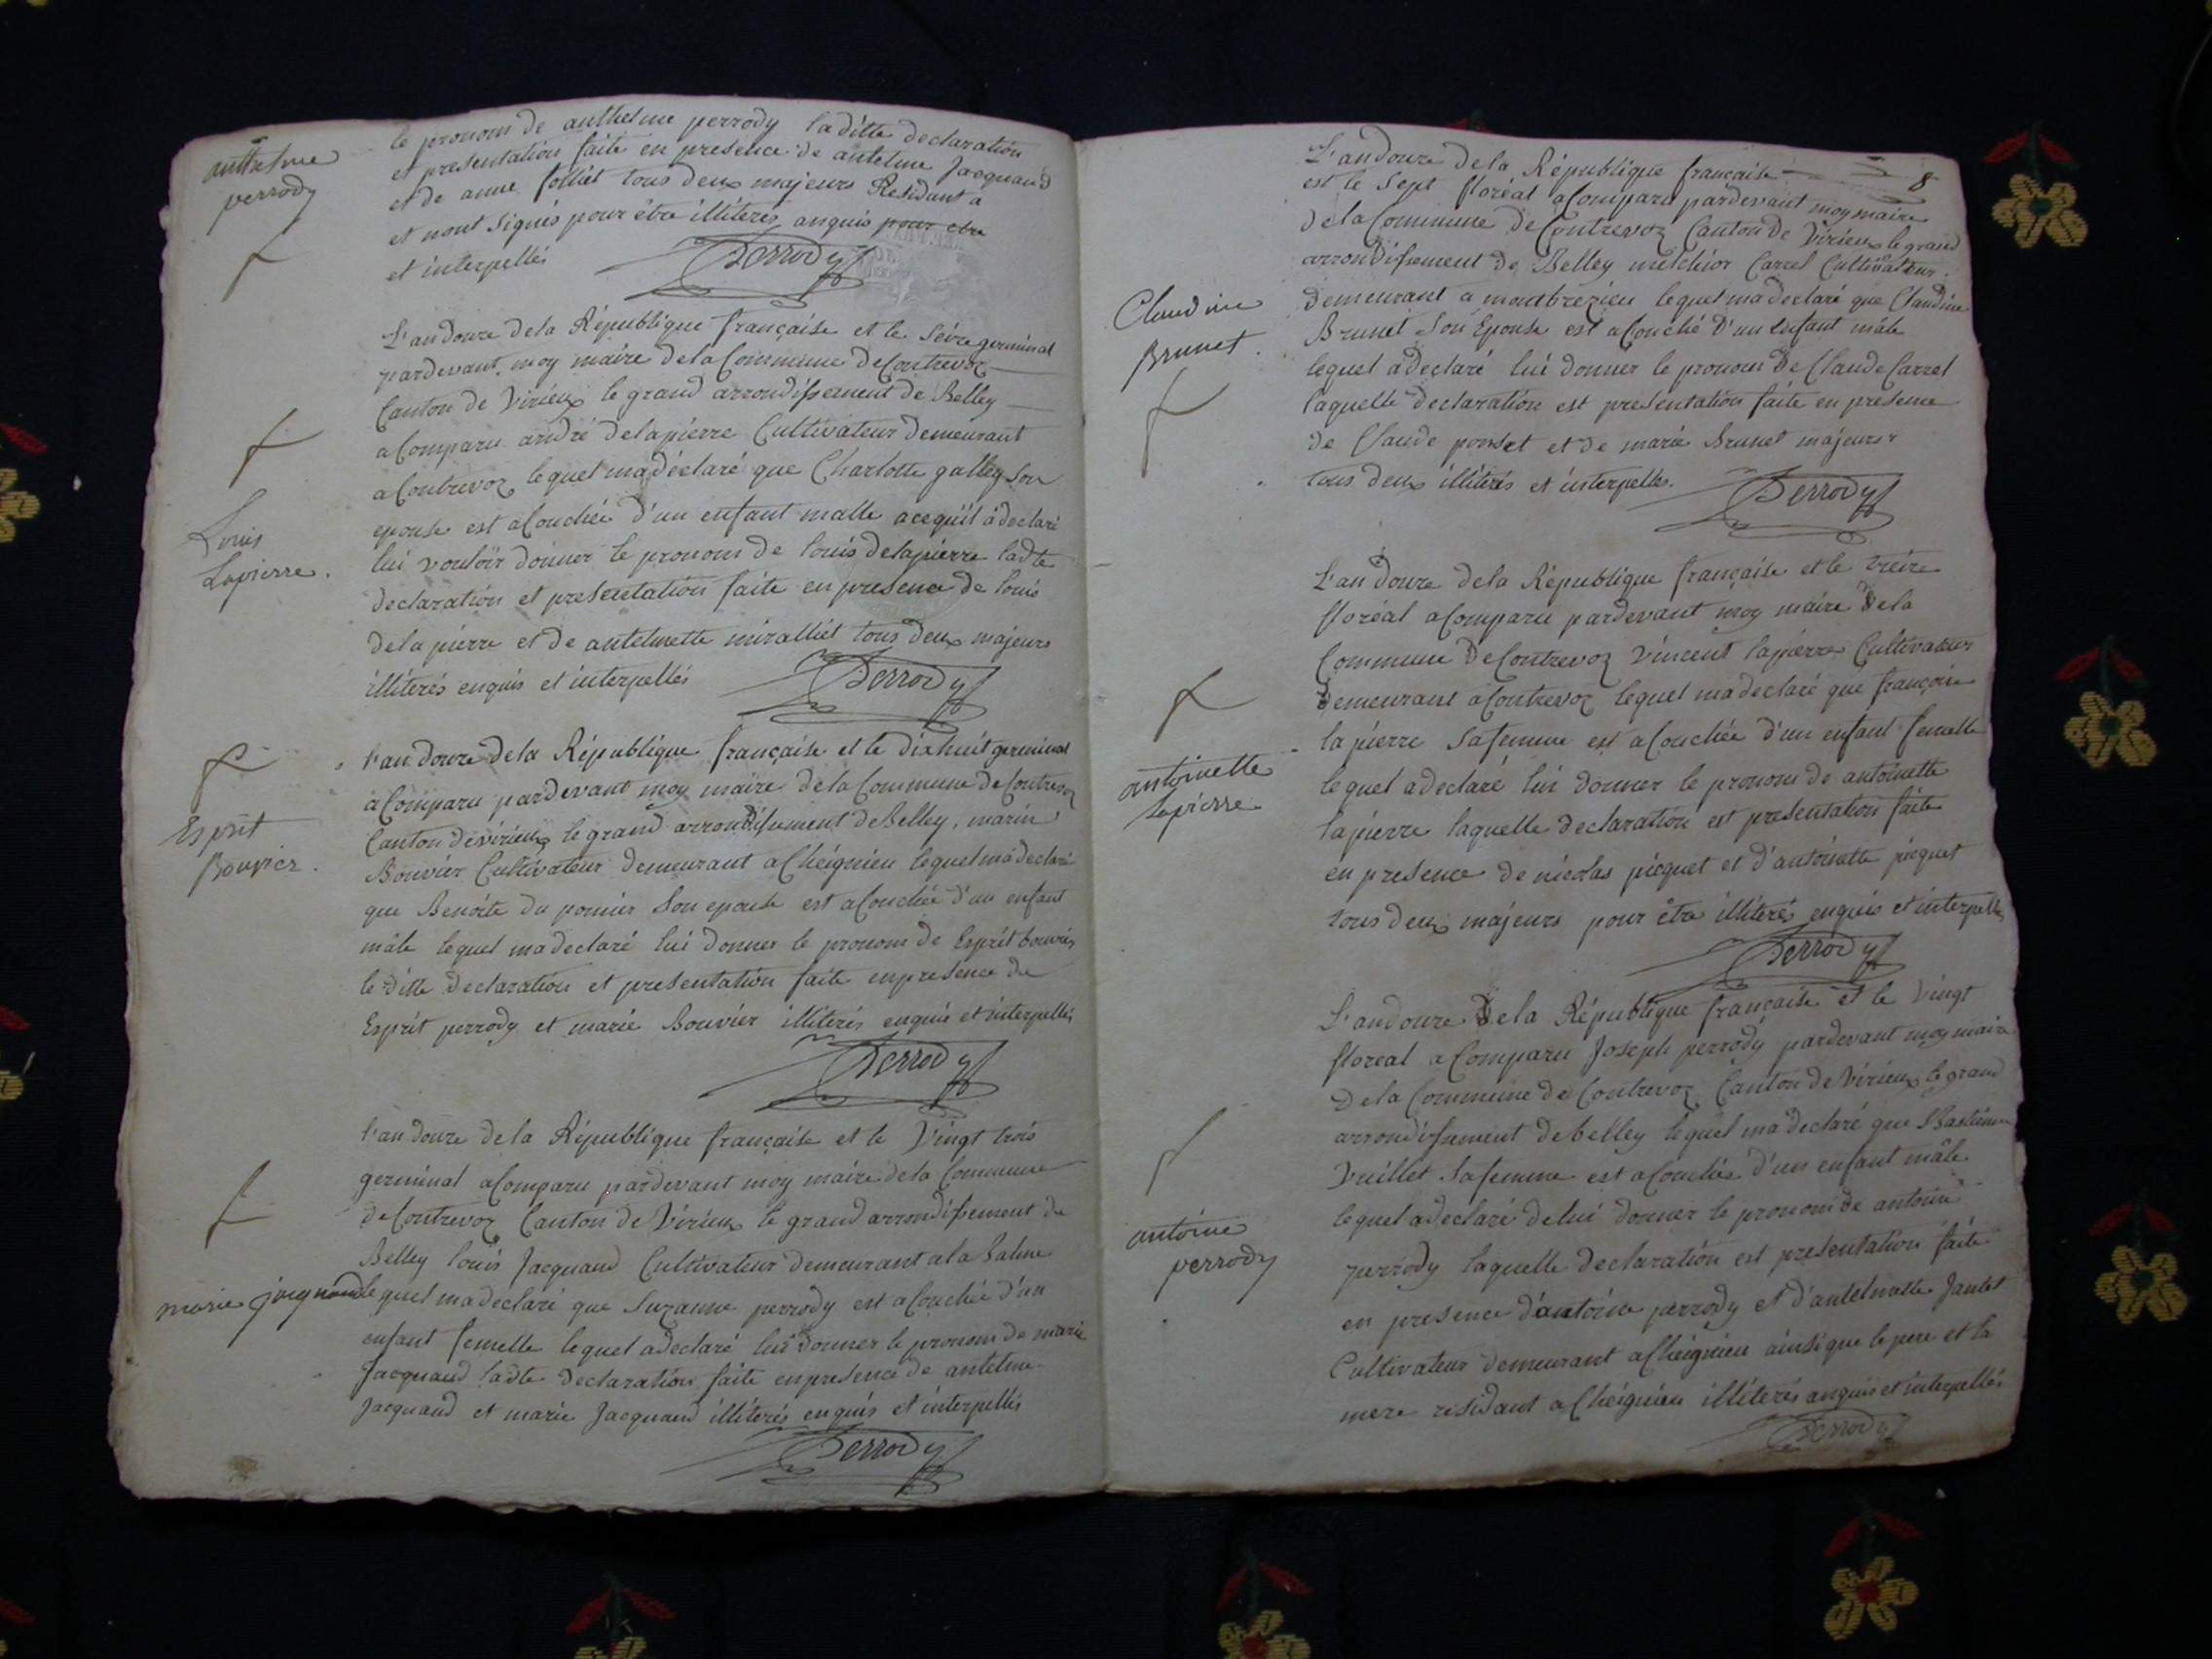 anthelme
perrody
le pronom de anthelme perrody laditte declaration
et presentation faite en presence de antelme Jacquand
et de anne folliet tous deux majeurs Residant a
et nont signés pour être illiterés anquis pour etre
et interpellés
Perrody
L'an douze de la République française et le seize germinal
pardevant moy maire de la Commune de Contrevoz
Canton de Virieux le grand arrondissement de Belley
a Comparu andré delapierre Cultivateur demeurant
a Contrevoz lequel ma déclaré que Charlotte galley son
epouse est acouchée d'un enfant malle acequil a declaré
Louis
Lapierre.
lui vouloir donner le pronom de louis delapierre ladte
declaration et presentation faite en presence de louis
delapierre et de antelmette miralliet tous deux majeurs
illiterés enquis et interpellés
Perrody
l'an douze de la République française et le dixhuit germinal
a Comparu pardevant moy maire de la Commune de Contrevoz
Esprit
Bouvier.
Canton de virieux le grand arrondissement de Belley, marin
Bouvier Cultivateur demeurant a Cheignieu lequel ma declaré
que Benoite du pomier son epouse est acouchée d'un enfant
mâle lequel ma declaré lui donner le pronom de Esprit bouvier
le ditte declaration et presentation faite en presence de
Esprit perrody et marie Bouvier illiterés enquis et interpellés
Perrody
l'an douze de la République française et le Vingt trois
germinal a Comparu pardevant moy maire de la Commune
de Contrevoz Canton de Virieux le grand arrondissement de
Belley louis Jacquand Cultivateur demeurant a la balme
marie jacquand
lequel ma declaré que Suzanne perrody est acouchée d'un
enfant femelle lequel a declaré lui donner le pronom de marie
Jacquand ladte declaration faite en presence de antelme
Jacquand et marie Jacquand illiterés enquis et interpellés
Perrody
8
L'an douze de la République française
est le Sept floréal a Comparu pardevant moy maire
de la Commune de Contrevoz Canton de Virieux le grand
arrondissement de Belley melchior Carrel Cultivateur
Claudine
Brunet.
demeurant a montbrezieu lequel ma declaré que Claudine
Brunet Son Epouse est acouché d'un enfant mâle
lequel a declaré lui donner le pronom de Claude Carrel
laquelle declaration est presentation faite en presence
de Claude ponset et de marie Brunet majeurs
tous deux illiterés et interpellés.
Perrody
L'an douze de la République française et le treize
floréal a Comparu pardevant moy maire de la
Commune de Contrevoz Vincent lapierre Cultivateur
demeurant a Contrevoz lequel ma declaré que françoise
antoinette
lapierre
lapierre sa femme est acouchée d'un enfant femelle
lequel a declaré lui donner le pronom de antoinette
lapierre laquelle declaration est presentation faite
en presence de nicolas picquet et d'antoinette picquet
tous deux majeurs pour être illiterés enquis et interpellés
Perrody
L'an douze de la République française et le Vingt
floreal a Comparu Joseph perrody pardevant moy maire
de la Commune de Contrevoz Canton de Virieux le grand
arrondissement de belley lequel ma declaré que
Vuillet sa femme est acouchée d'un enfant mâle
antoine
perrody
lequel a declaré de lui donner le pronom de antoine
perrody laquelle declaration est presentation faite
en presence d'antoine perrody et d'antelmette Jantet
Cultivateur demeurant a Cheignieu ainsi que le pere et la
mere residant a Cheignieu illiterés anquis et interpellés
Perrody